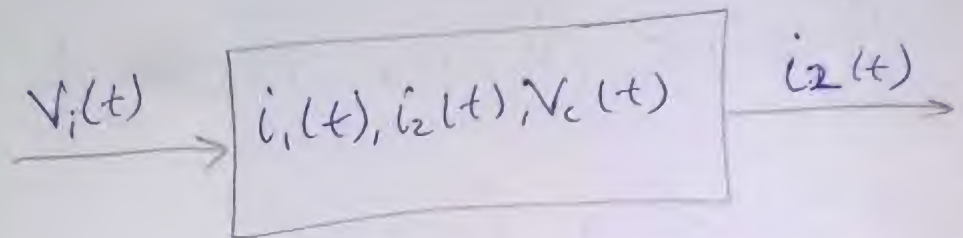 Vi(t)
i1(t), i2(t), Vc(t)
i2(t)